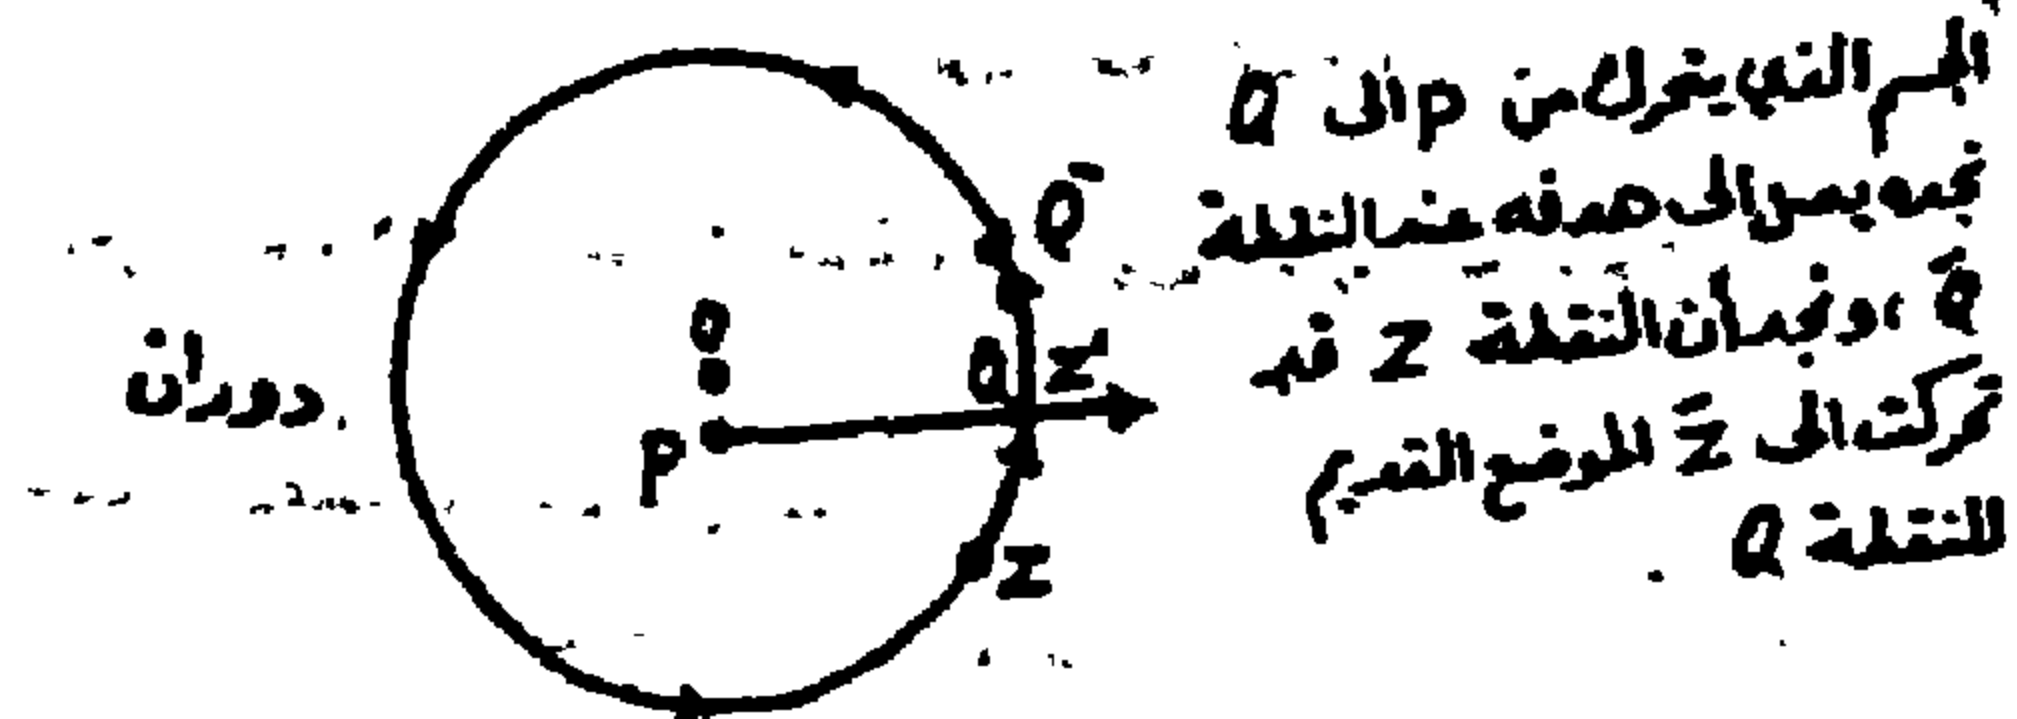 الجسم الذي يتحرك من P الى Q
نجده يصل الى هدفه عند النقطة
Q̄ ، ونجد أن النقطة Z قد
تحركت الى Z̄ الموضع القديم
للنقطة Q .
Q̄
O
Q Z'
P
Z
دوران